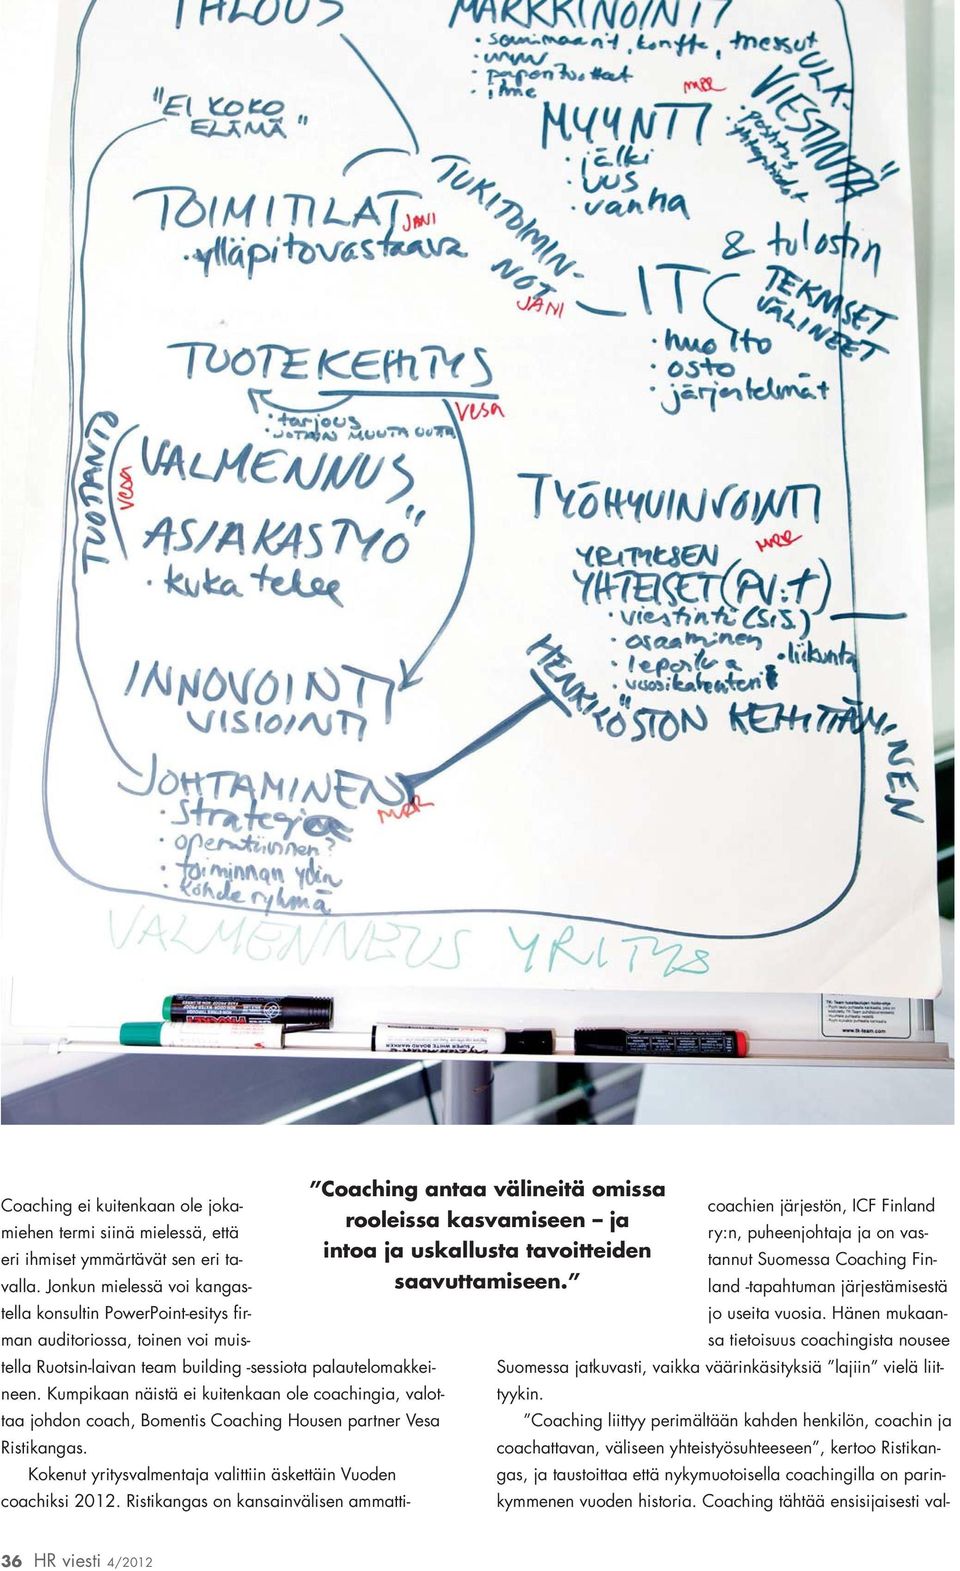 TALOUS
MARKKINOINTI
• www
• ihme
ULK-
VIESTINTÄ"
• postitus
MER
"EI KOKO
ELÄMÄ"
MYYNTI
• jälki
• UUS
• vanha
TOIMITILAT
JANI
• ylläpitovastaava
TUKITOIMIN-
NOT
JANI
& tulostin
IT
TEKNISET
VÄLINEET
• huolto
• osto
• järjestelmät
TUOTEKEHITYS
Vesa
• tarjous
• JOTAIN MUUTA UUTTA
TUOTANTO
Vesa
VALMENNUS
ASIAKASTYÖ"
• kuka tekee
TYÖHYVINVOINTI
MER
YRITYKSEN
YHTEISET (PV:t)
• viestintä (SIS.)
• osaaminen
• liikunta
HENKILÖSTÖN KEHITTÄMINEN
INNOVOINTI
VISIOINTI
JOHTAMINEN
MER
• strategia
• operatiivinen?
• toiminnan ydin
• kohderyhmä
VALMENNUS YRITYS
www.tk-team.com
Coaching ei kuitenkaan ole joka-
miehen termi siinä mielessä, että
eri ihmiset ymmärtävät sen eri ta-
valla. Jonkun mielessä voi kangas-
tella konsultin PowerPoint-esitys fir-
man auditoriossa, toinen voi muis-
tella Ruotsin-laivan team building -sessiota palautelomakkei-
neen. Kumpikaan näistä ei kuitenkaan ole coachingia, valot-
taa johdon coach, Bomentis Coaching Housen partner Vesa
Ristikangas.
Kokenut yritysvalmentaja valittiin äskettäin Vuoden
coachiksi 2012. Ristikangas on kansainvälisen ammatti-
"Coaching antaa välineitä omissa
rooleissa kasvamiseen – ja
intoa ja uskallusta tavoitteiden
saavuttamiseen."
coachien järjestön, ICF Finland
ry:n, puheenjohtaja ja on vas-
tannut Suomessa Coaching Fin-
land -tapahtuman järjestämisestä
jo useita vuosia. Hänen mukaan-
sa tietoisuus coachingista nousee
Suomessa jatkuvasti, vaikka väärinkäsityksiä "lajiin" vielä liit-
tyykin.
"Coaching liittyy perimältään kahden henkilön, coachin ja
coachattavan, väliseen yhteistyösuhteeseen", kertoo Ristikan-
gas, ja taustoittaa että nykymuotoisella coachingilla on parin-
kymmenen vuoden historia. Coaching tähtää ensisijaisesti val-
36 HR viesti 4/2012